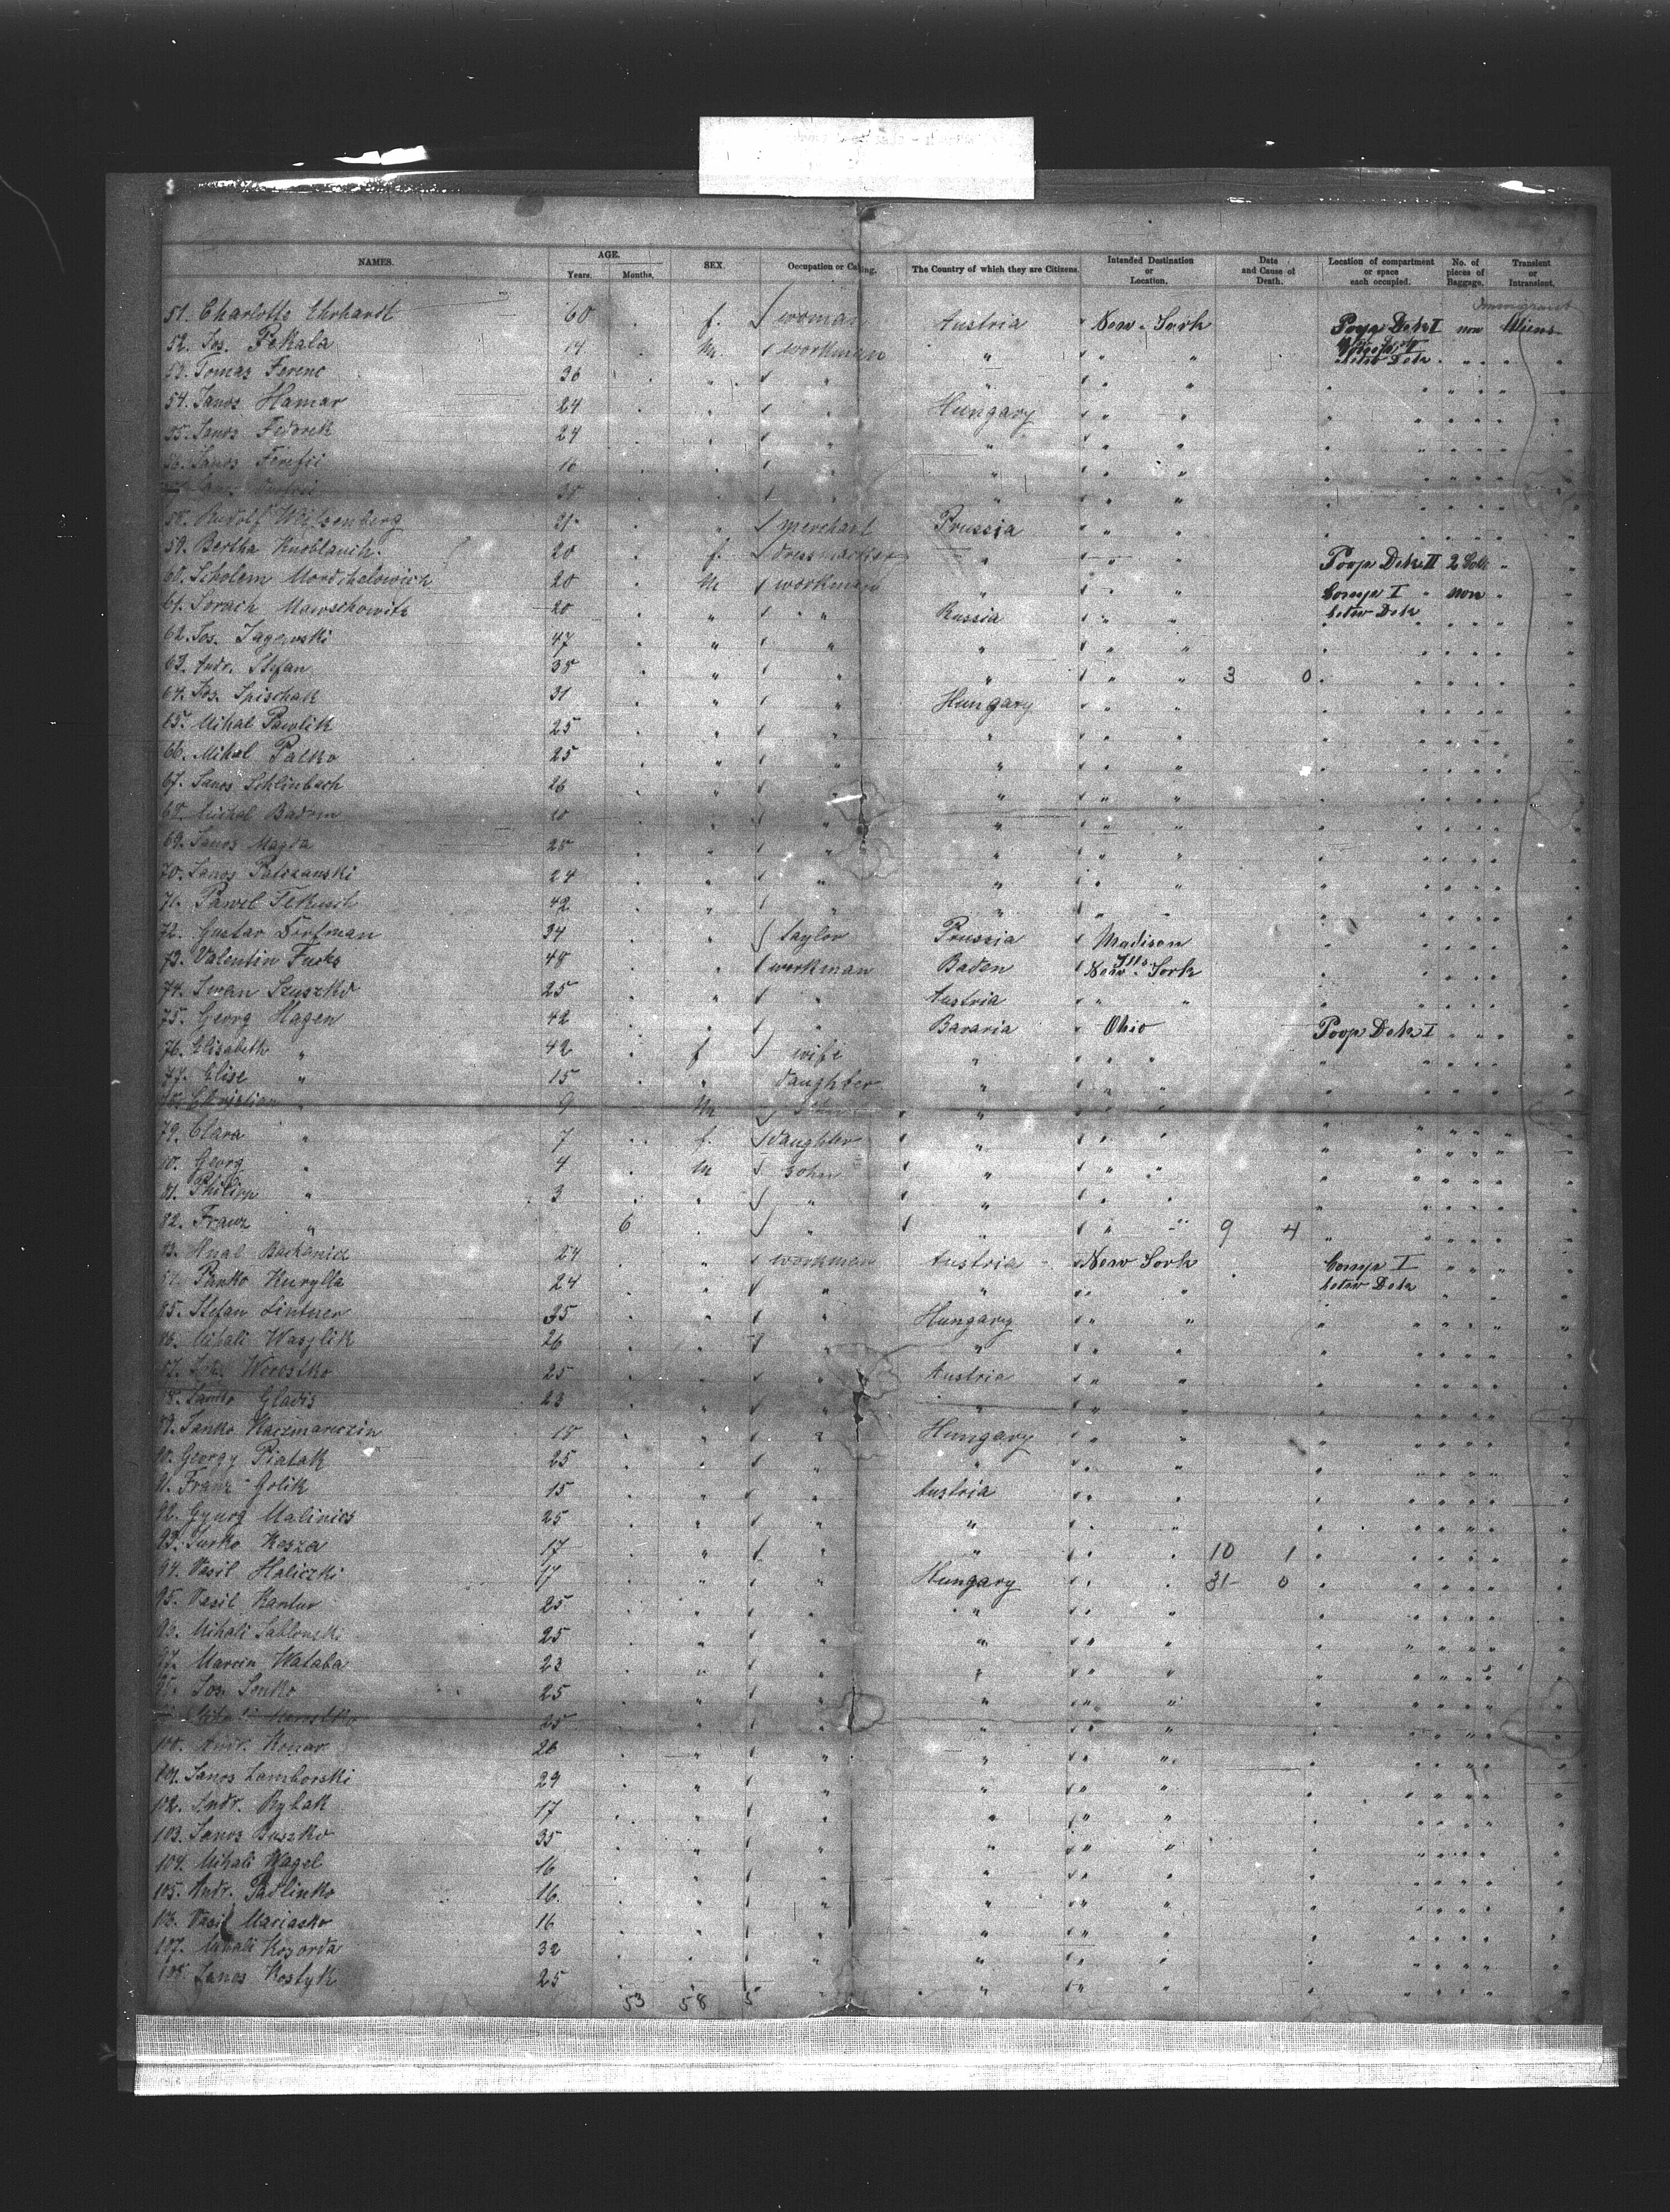 NAMES. AGE. Years. Months. SEX. Occupation or Calling. The Country of which they are Citizens. Intended Destination or Location. Date and Cause of Death. Location of compartment or space each occupied. No. of pieces of Baggage. Transient or Intransient.
Immigrant
51. Charlotte Ehrhardt 60 f. woman Austria New-York Poop Deck I non Aliens
52. Jos. Pekala 14 M. workman " " " betw Deck " " "
53. Tomas Ferenc 36 " " " " "
54. Janos Hamar 24 " " Hungary " "
55. Janos Fedorek 24 " " " " "
56. Janos 16 " " " " "
38 " " " " "
58. Rudolf Weissenberg 31 " merchant Prussia " "
59. Bertha Knoblauch. 20 f. dressmacker " " " Poop Deck II 2 Coll "
60. Scholem Mordchelowich 20 M workman " " " Comp I " non "
61. Sorach Mawschowitz 20 " " Russia " " betw Deck
62. Jos. Jagowski 47 " " " " "
63. Andr. Stefan 38 " " " " " 3 0
64. Jos. Spischak 31 " " Hungary " "
65. Mihal Pawlik 25 " " " " "
66. Mihal Palko 25 " " " " "
67. Janos Schlinbach 26 " " " " "
68. Michal 20 " " " " "
69. Janos Magda 28 " " " " "
70. Janos 24 " " " " "
71. Pawel Fekusch 42 " " " " "
72. Gustav Dorfman 34 " taylor Prussia Madison
Ills
73. Valentin Fuchs 48 " workman Baden New-York
74. Iwan Szuszko 25 " " Austria " "
75. Georg Hagen 42 " " Bavaria Ohio Poop Deck I
76. Elisabeth " 42 f wife " "
77. Elise " 15 " daughter " "
78. Christian " 9 M " "
79. Clara " 7 f. daughter " "
80. Georg " 4 M sohn " "
81. Philipp " 3 " " " "
82. Franz " 6 " " " " 9 4
83. Bachanicz 24 workman Austria New York Comp I
84. Panko Kurylla 24 " " " " " betw Deck
85. Stefan Lintner 35 " " Hungary " "
86. Mihali Wasylik 26 " " " " "
87. Worostko 25 " " Austria " "
88. Janko Gladis 23 " " " " "
89. Janko Kaczmarczin 18 " " Hungary " "
90. Georgy Piatak 25 " " " " "
91. Franz Golik 15 " " Austria " "
92. Gyurg Malinics 25 " " " " "
93. Jurko Kesza 17 " " " " " 10 1
94. Vasil Haliczki 17 " " Hungary " " 31 0
95. Vasil Kantur 25 " " " " "
96. Mihali Jablonski 25 " " " " "
97. Marcin Wataba 23 " " " " "
98. Jos. Senko 25 " " " " "
25 " " " " "
100. Andr. Konar 26 " " " " "
101. Janos Lamborski 29 " " " " "
102. Andr. Rybak 17 " " " " "
103. Janos Buszko 35 " " " " "
104. Mihali Wagel 16 " " " " "
105. Andr. Padlinko 16 " " " " "
106. Vasil Mariasko 16 " " " " "
107. Mihali Kosorda 32 " " " " "
108. Janos Kostyk 25 " " " " "
53 58 5